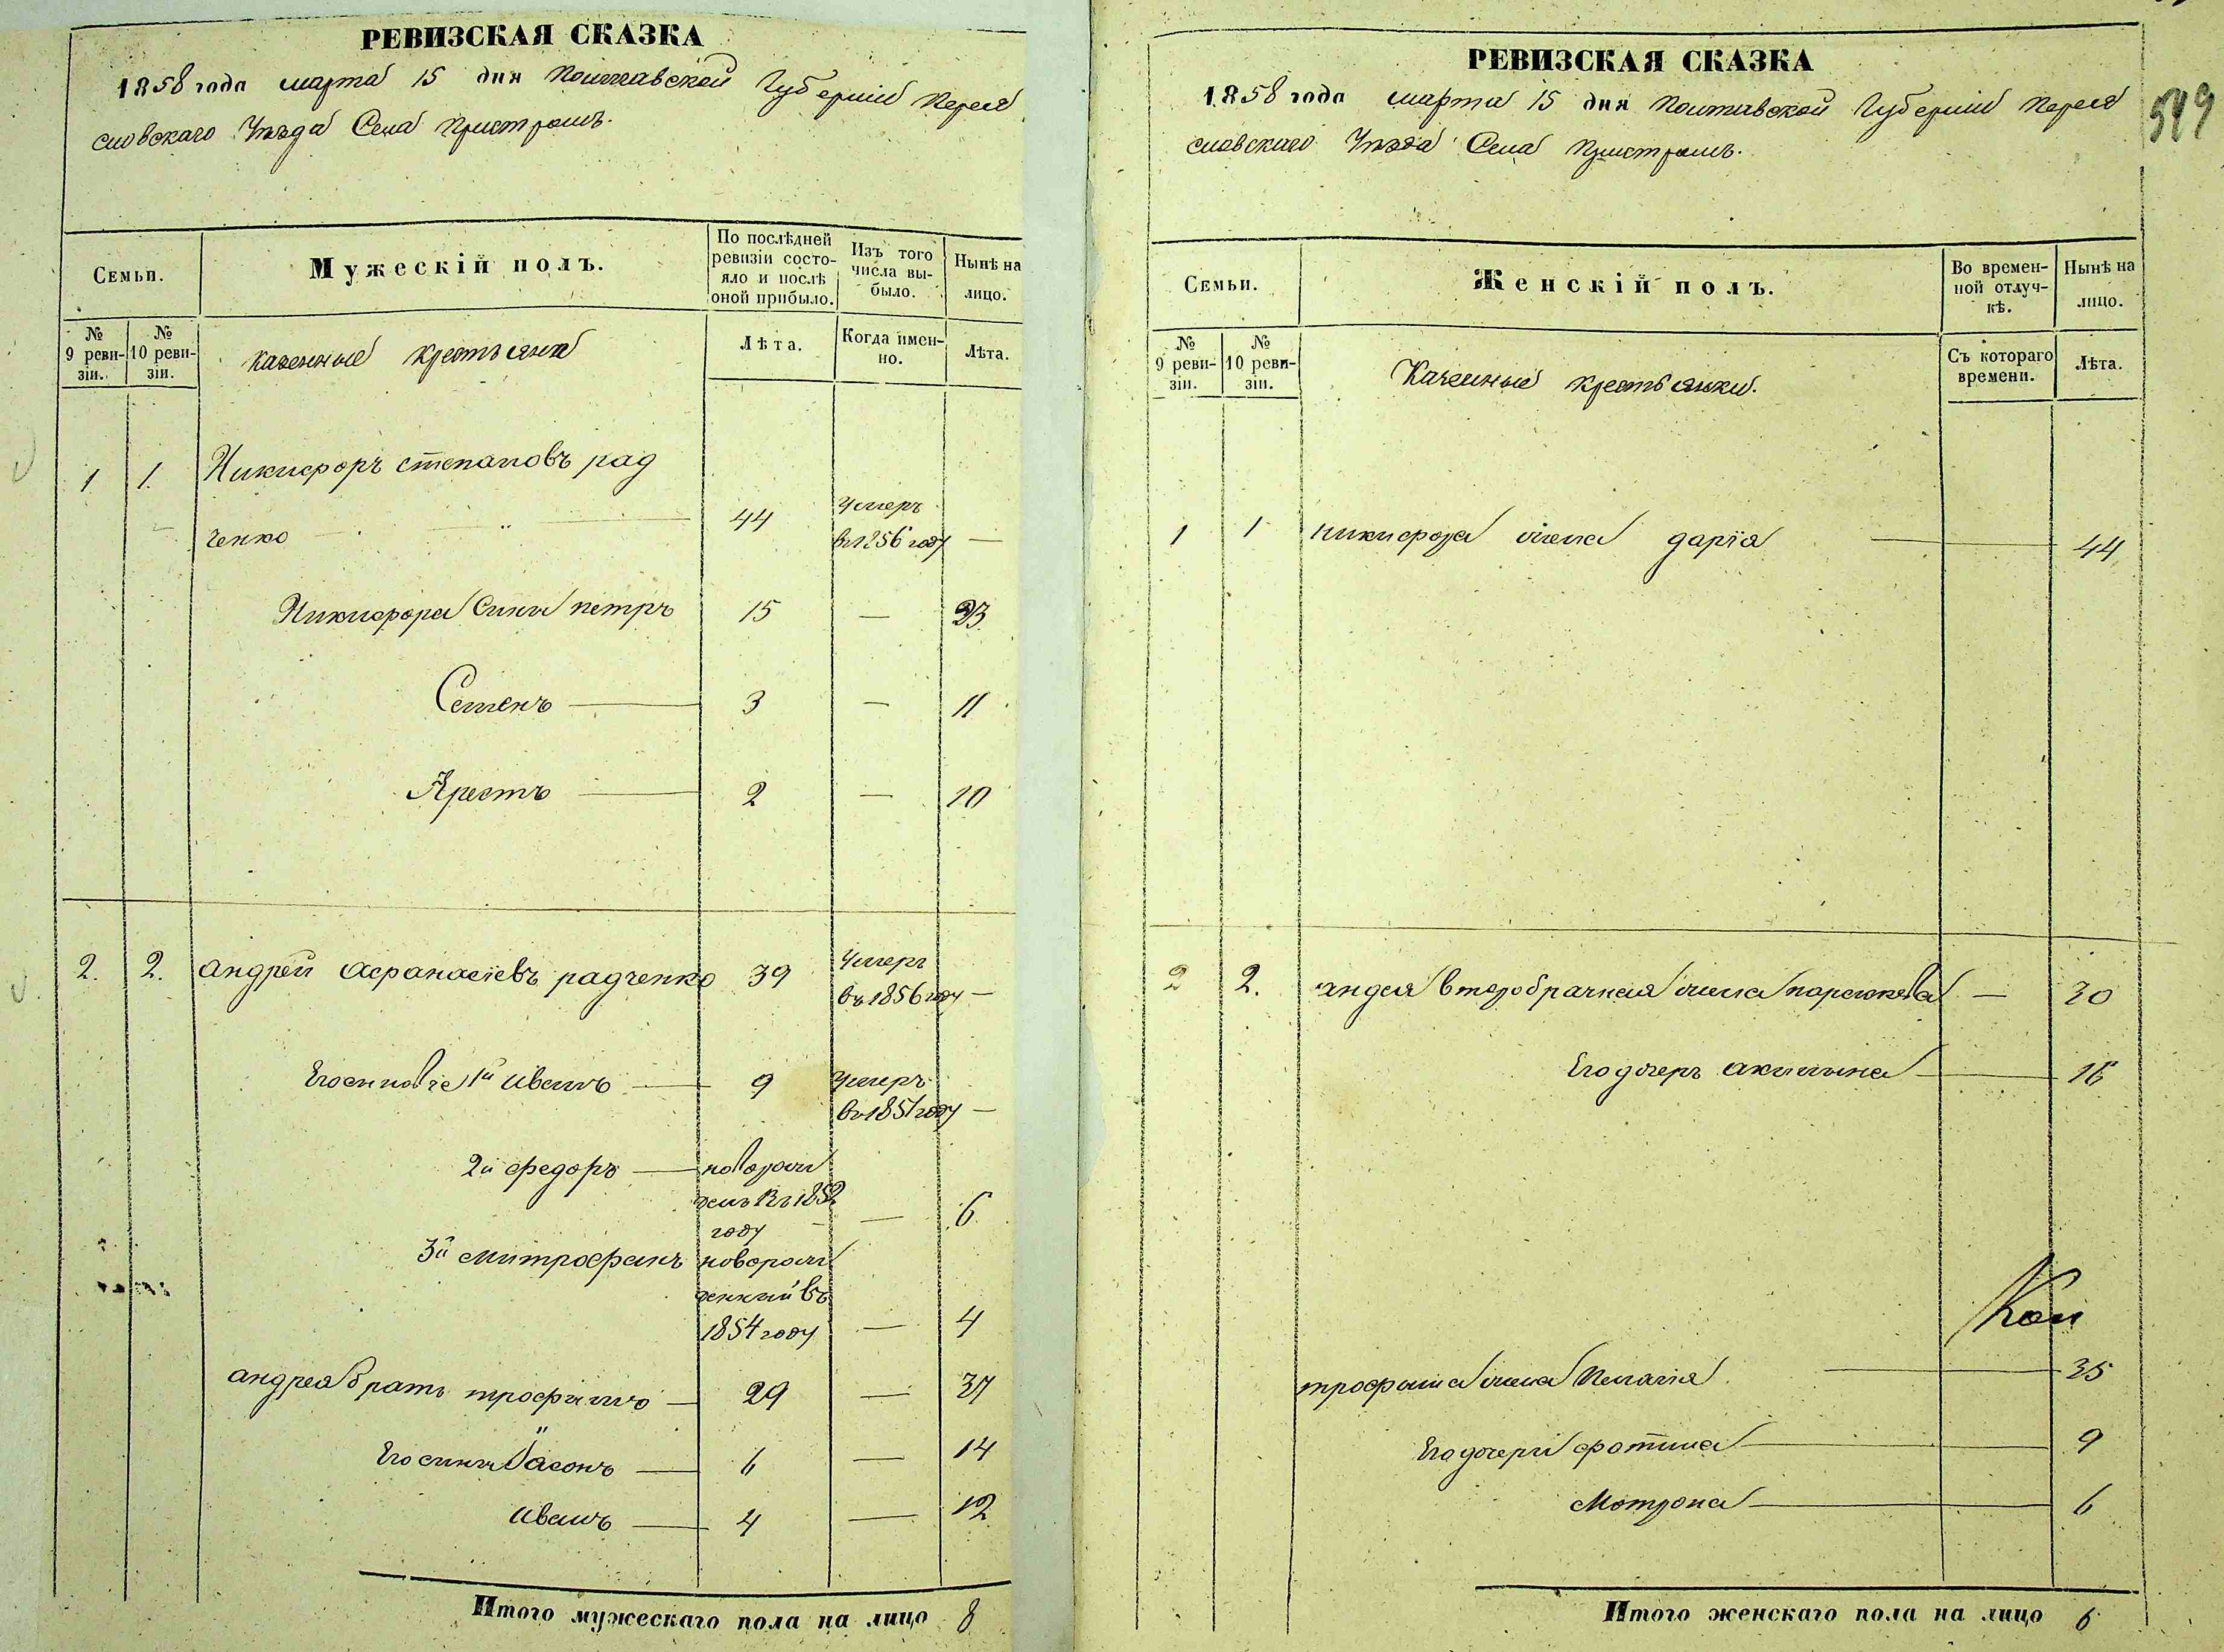 РЕВИЗСКАЯ СКАЗКА
1858 года марта 15 дня Полтавской Губернии Переяс
словскаго Уѣзда Села Пристромъ.
Семьи.
Мужескій полъ.
По послѣдней ревизіи состояло и послѣ оной прибыло.
Изъ того числа выбыло.
Нынѣ на лицо.
№ 9 ревизіи.
№ 10 ревизіи.
казенные крестьяне
Лѣта.
Когда именно.
Лѣта.
1 1. Никифоръ степановъ рад
ченко 44 Умеръ
въ 1856 году —
Никифора Сины петръ 15 — 23
Семенъ — 3 — 11
Арестъ — 2 — 10
2. 2. андрей афанасіевъ радченко 39 Умеръ
въ 1856 году —
Его синовъе 1й иванъ — 9 Умеръ
въ 1851 году —
2й федоръ —новорож
денъ въ 1852
году — 6
3й митрофанъ новорож
денний въ
1854 году — 4
андрея братъ трофимъ — 29 — 37
Его сины Іасонъ — 6 — 14
иванъ — 4 — 12
Итого мужескаго пола на лицо 8
РЕВИЗСКАЯ СКАЗКА
549
1858 года марта 15 дня Полтавской Губернии Переяс
словскаго Уѣзда Села Пристромъ.
Семьи.
Женскій полъ.
Во временной отлучкѣ.
Нынѣ на лицо.
№ 9 ревизіи.
№ 10 ревизіи.
Казенные крестьянки.
Съ котораго времени.
Лѣта.
1 1 никифора жена дарія — 44
2 2. андея второбрачная жена параскева — 30
Его дочеръ акилина — 16
трофима жена Пелагія — 35
Его дочери фотина — 9
Мотрона — 6
Итого женскаго пола на лицо 6